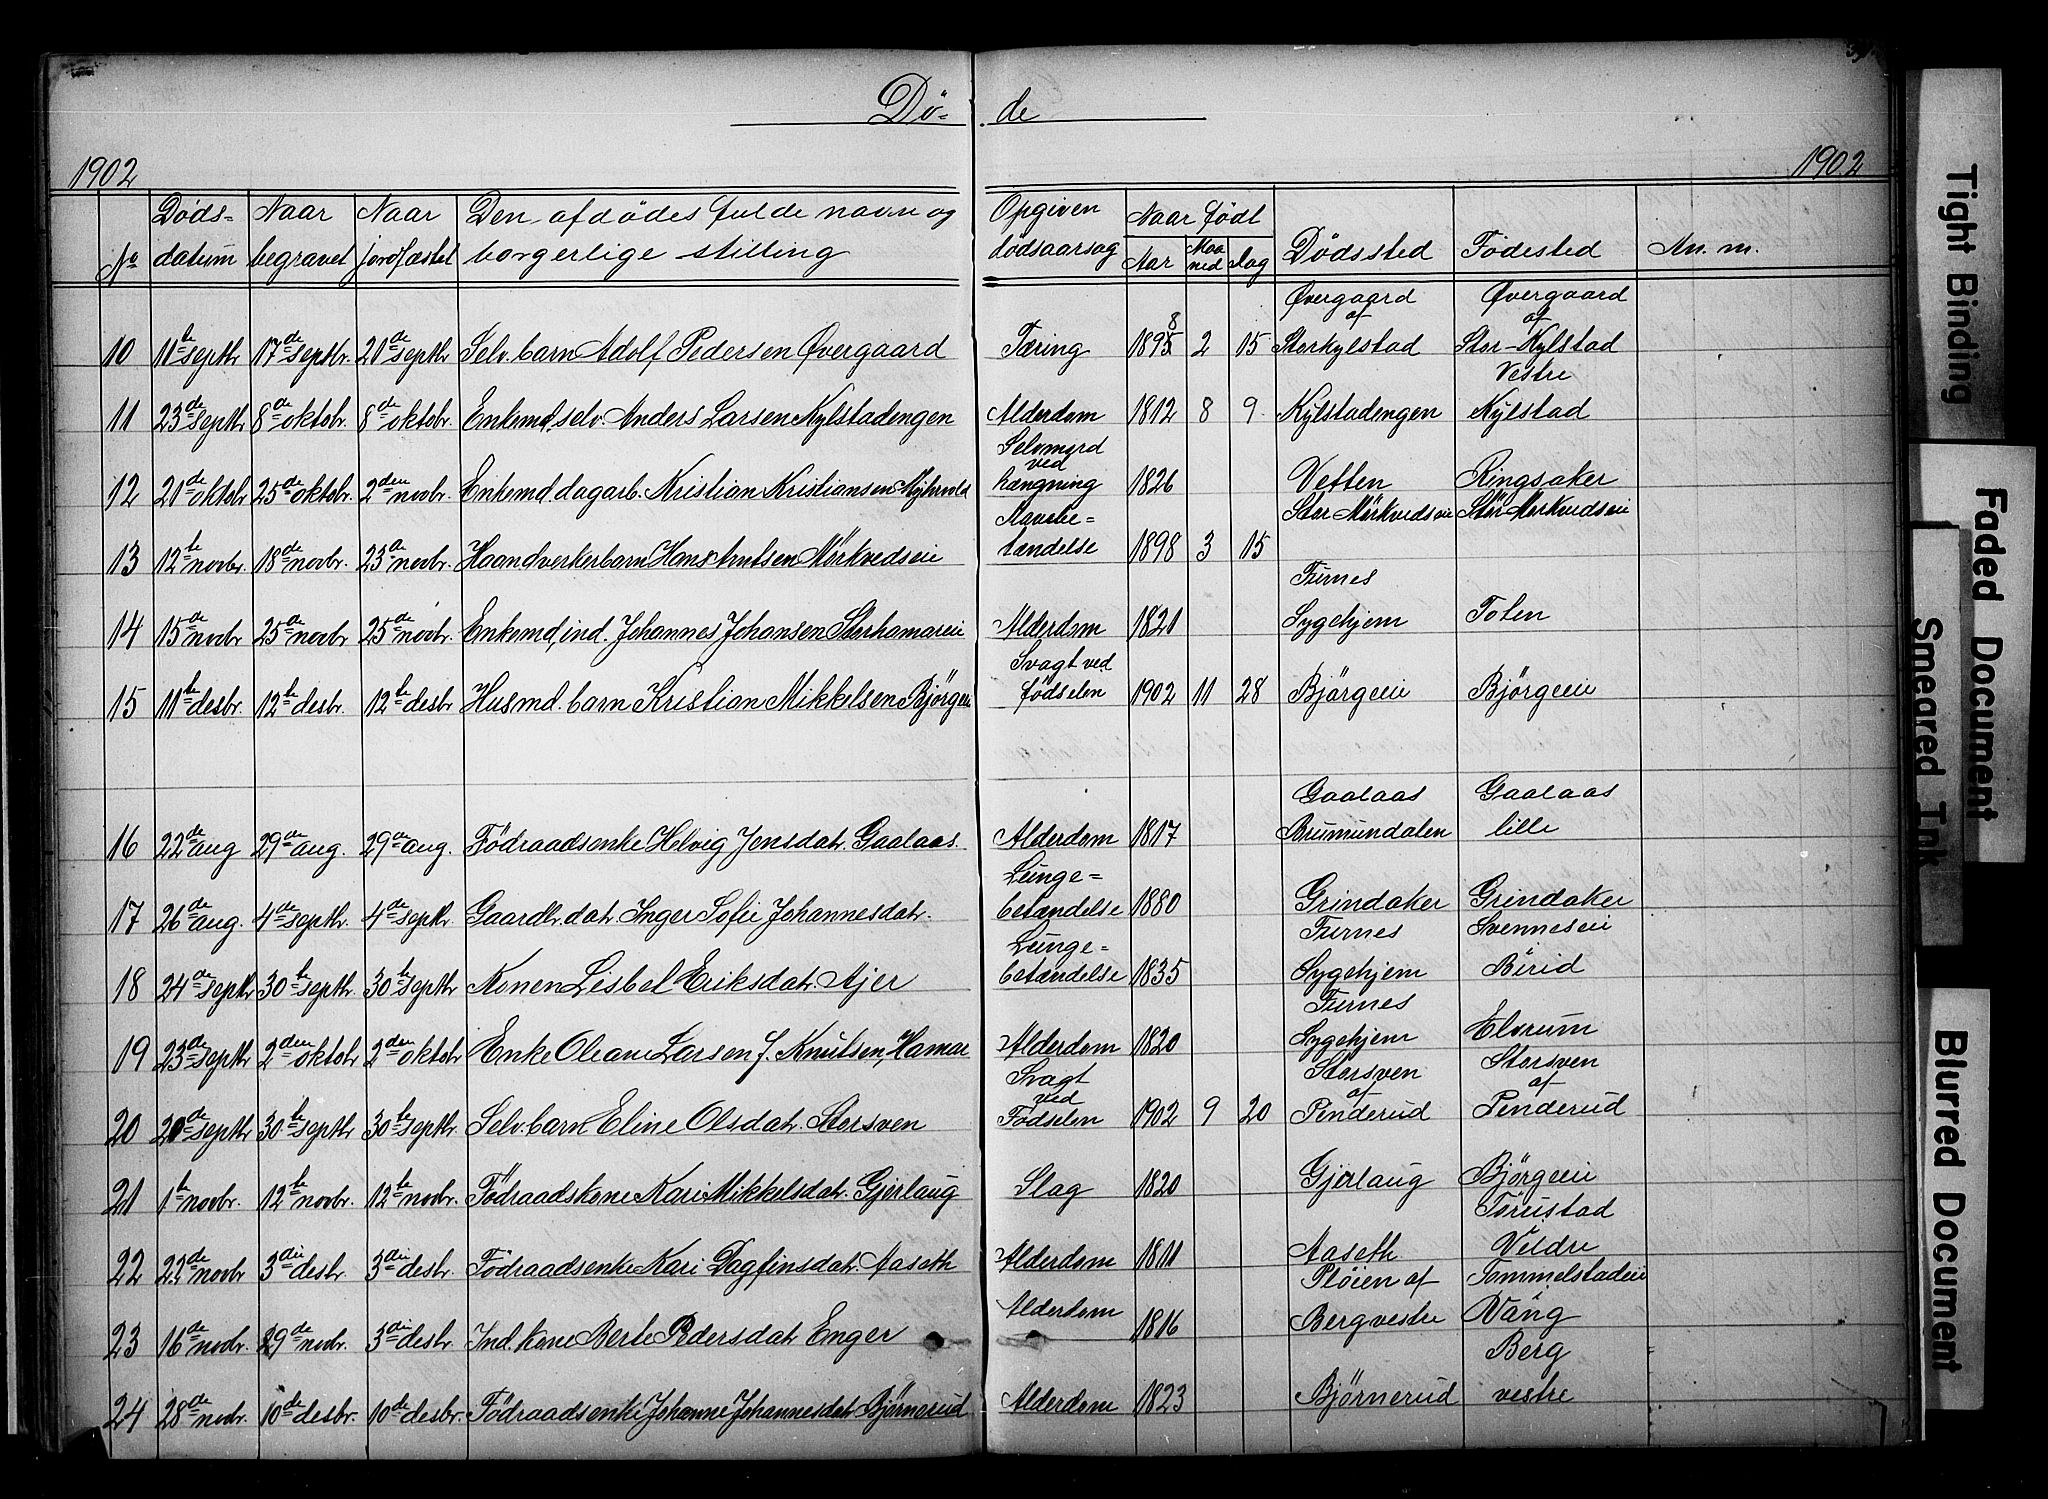 Dö- de
1902 1902
No Døds-datum Naar begravet Naar jordfæstet Den afdødes fulde navn og borgerlige stilling Opgiven dødsaarsag Naar født Aar Maaned Dag Dødssted Fødested An. m.
10 11te septbr 17de septbr. 20de septbr Selv. barn Adolf Pedersen Øvergaard Tæring 1895 8 2 15 Øvergaard af Storkylstad Øvergaard af Stor-Kylstad
11 23de septbr 8de oktobr. 8de oktobr. Enkemd. selv. Anders Larsen Kylstadengen Alderdom 1812 8 9 Kylstadengen Vestre Kylstad
12 20de oktobr 25de oktobr. 2den novbr. Enkemd. dagarb. Kristian Kristiansen Selvmord ved hængning 1826 Vetten Ringsaker
13 12te novbr. 18de novbr. 23de novbr. Haandverkerbarn Hans Mörkvedseie Mavebe=tændelse 1898 3 15 Stor Mörkvedseie Stor Mörkvedseie
14 15de novbr 25de novbr 25de novbr. Enkemd, ind. Johannes Johansen Storhamareie Alderdom 1820 Furnes Sygehjem Toten
15 11te desbr. 12te desbr. 12te desbr Husmd. barn Kristian Mikkelsen Bjørgeeie Svagt ved födselen 1902 11 28 Bjørgeeie Bjørgeeie
16 22de aug 29de aug. 29de aug. Födraadsenke Helvig Jensdatr. Gaalaas. Alderdom 1817 Gaalaas Brumundalen Gaalaas lille
17 26de aug. 4de septbr. 4de septbr. Gaardbr. datr Inger Sofie Johannesdatr. Lunge=betændelse 1880 Grindaker Grindaker
18 24de septbr 30te septbr 30te septbr Konen Lisbet Eriksdatr. Ajer Lunge=betændelse 1835 Furnes Sygehjem Svenneseie Birid
19 23de septbr 2den oktobr 2den oktobr Enke Oleane Larsen f. Knutsen, Hamar Alderdom 1820 Furnes Sygehjem Elvrum
20 20de septbr 30te septbr 30te septbr Selv. barn Eline Olsdatr. Storsven Svagt ved Födselen 1902 9 20 Storsven af Penderud Storsven af Penderud
21 1te novbr. 12te novbr. 12te novbr. Födraadskone Kari Mikkelsdatr. Gjerlaug Slag 1820 Gjerlaug Bjørgeeie
22 22de novbr 3die desbr. 3die desbr. Födraadsenke Kari Dagfinsdatr. Aaseth Alderdom 1811 Aaseth. Tørustad Veldre
23 16de novbr. 29de novbr. 3die desbr. Ind. kone Berte Pedersdatr Enger Alderdom 1816 Pløien af Berg vestre Tommelstadeie Vang
24 28de novbr. 10de desbr. 10de desbr. Födraadsenke Johanne Johannesdatr Bjørnerud Alderdom 1823 Bjørnerud Berg vestre
Tight Binding
Faded Document
Smeared Ink
Blurred Document